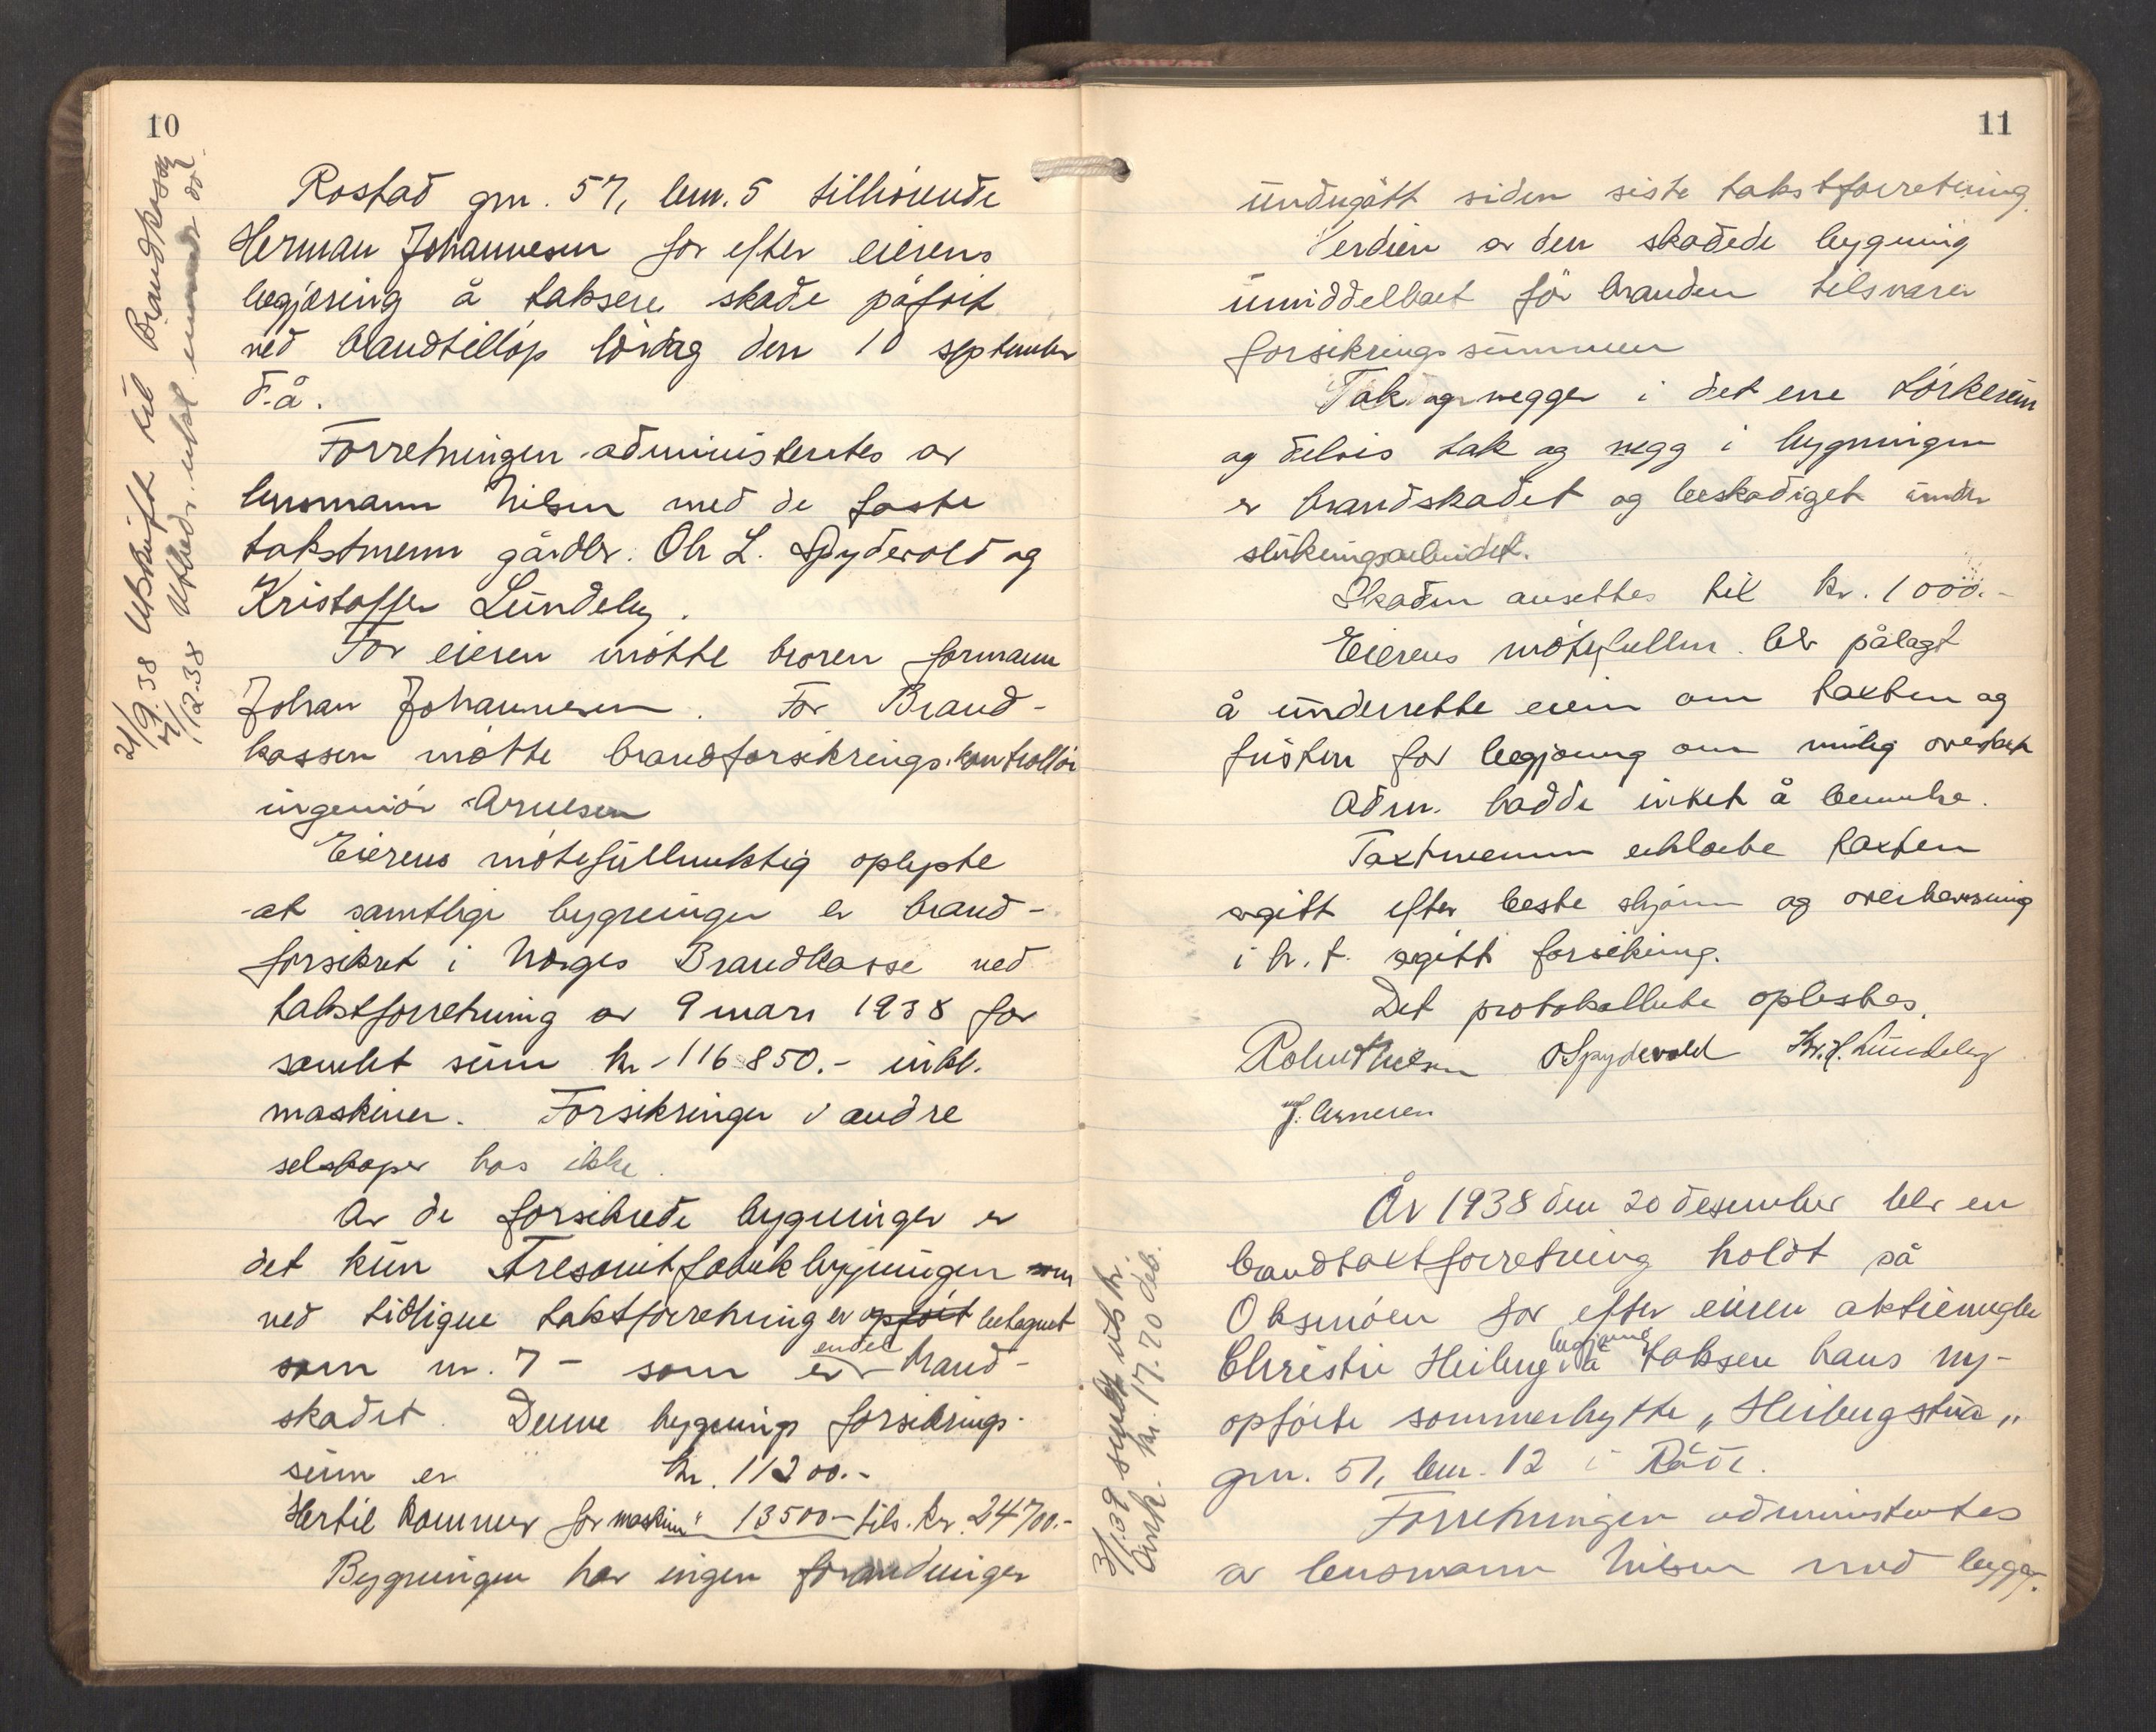 10
Rostad gnr. 57, bnr. 5 tilhörende
Herman Johannesen for efter eierens
begjæring å taksere skade påført
ved brandtilløp lördag den 10 september
d.å.
Forretningen administrertes av
lensmann Nilsen med de faste
takstmenn gårdbr. Ole L. Spydevold og
Kristoffer Lundeby.
For eieren møtte broren formann
Johan Johannesen. For Brand-
kassen møtte brandforsikrings.kontrollør
ingeniör Arnesen
Eierens møtefullmektig oplyste
at samtlige bygninger er brand-
forsikret i Norges Brandkasse ved
takstforretning av 9 mars 1938 for
samlet sum kr. 116850.- inkl.
maskiner. Forsikringer i andre
selskaper has ikke.
Av de forsikrede bygninger er
det kun Tresonitfabrikbygningen som
ved tidligere takstforretning er opført betegnet
som nr. 7 - som er endel brand-
skadet. Denne bygnings forsikrings-
sum er kr. 11200.-
Hertil kommer for maskin " 13500- tils. kr. 24700.-
Bygningen har ingen forandringer
21/9.38 Utskrift til Brandkassen
1/12.38 Utbed.
11
undergått siden siste takstforretning.
Verdien av den skadede bygning
umiddelbart før branden tilsvarer
forsikringssummen
Tak og vegger i det ene tørkerum
og delvis tak og vegg i bygningen
er brandskadet og beskadiget under
slukningsarbeidet.
Skaden ansettes til kr. 1000.-
Eierens møtefullm. blv pålagt
å underrette eieren om taxten og
fristen for begjæring om mulig overtakst
Adm. hadde intet å bemerke.
Taxtmenn erklærte taxten
avgitt efter beste skjønn og overbevisning
i h. t. avgitt forsikring.
Det protokollerte oplestes.
Robert Nilsen O Spydevold Kr. H. Lundeby
J. Arnesen
År 1938 den 20 desember blv en
brandtaxtforretning holdt på
Oksmoen for efter eieren aktiemegler
Christie Heiberg's begjæring å taksere hans ny-
opførte sommerhytte „Heibergstua„
gnr. 51, bnr. 12 i Råde.
Forretningen administrertes
av lensmann Nilsen med bygge-
3/1.39 sendt utskr.
Omk. kr. 17.70 deb.